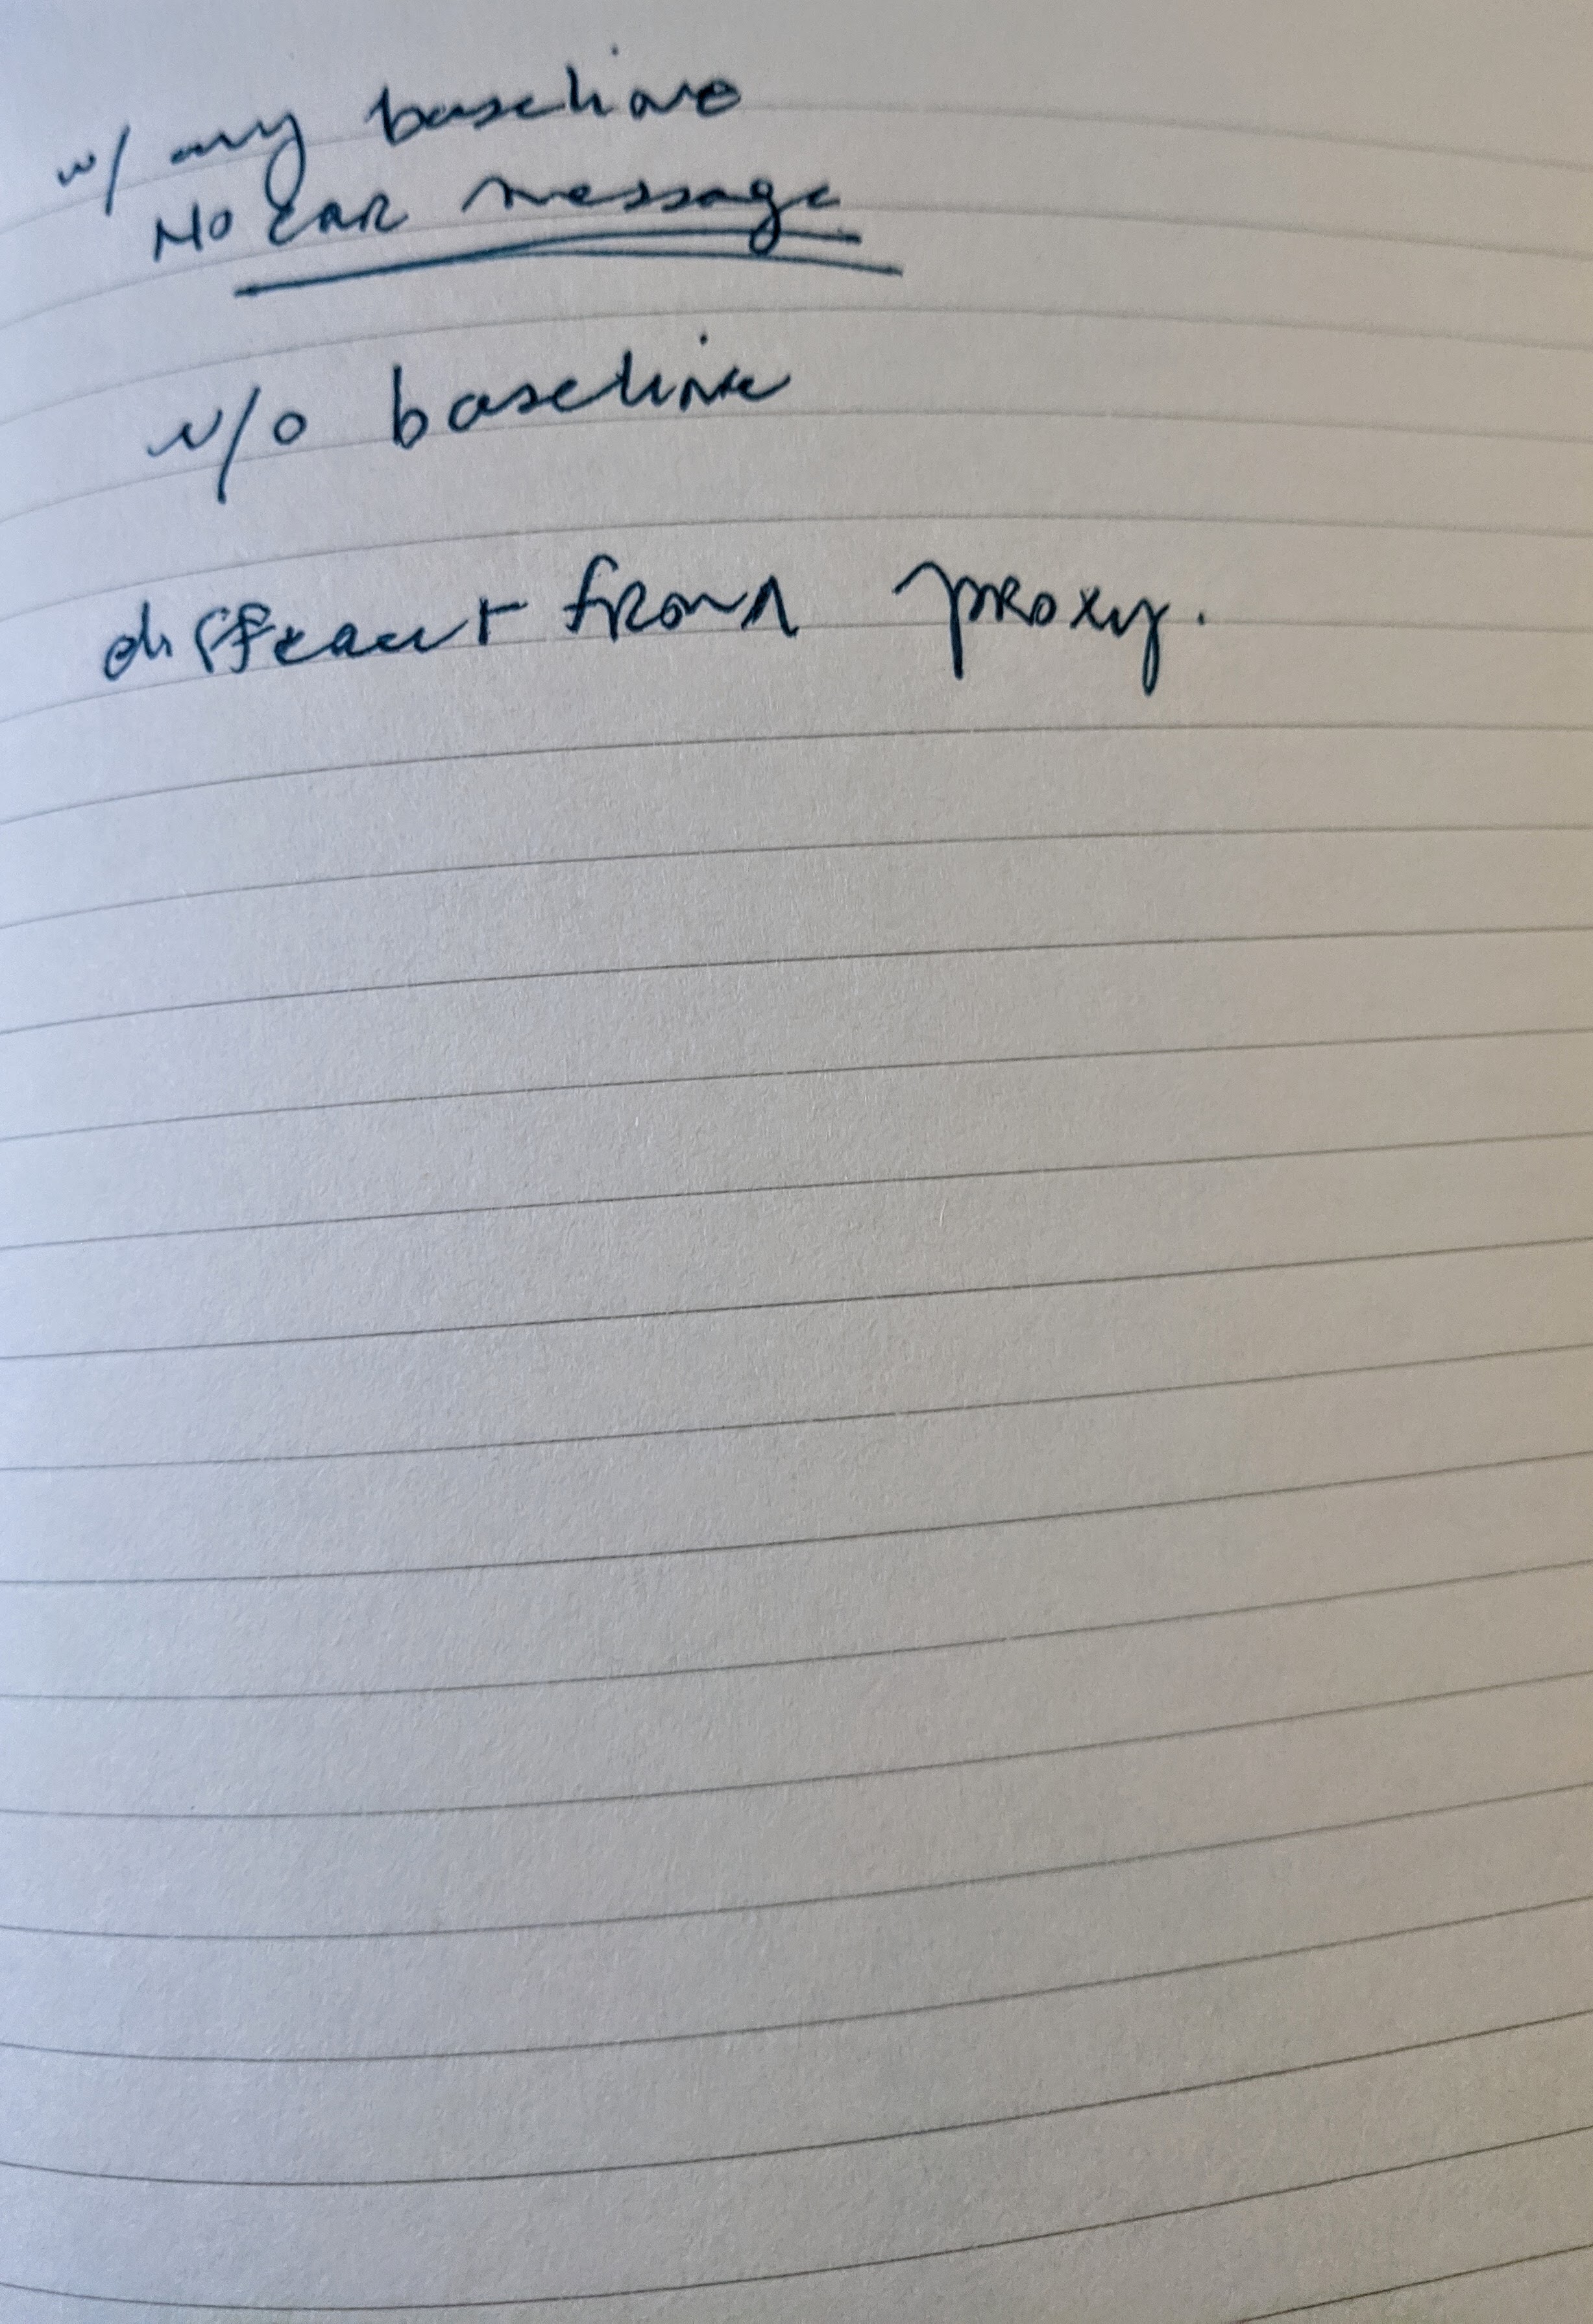 w/ any baseline
No EAR message
w/o baseline
different from proxy.